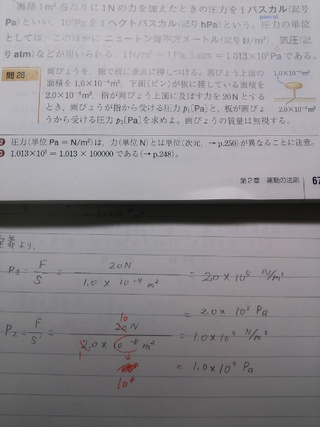 面積1m²当たりに1Nの力を加えたときの圧力を1パスカル(記号
pascal
Pa)といい、10²Paを1ヘクトパスカル(記号hPa)という。圧力の単位
としては、このほかにニュートン毎平方メートル(記号N/m²)、気圧(記
号atm)などが用いられる。1N/m²=1Pa、1atm=1.013×10⁵Paである。
問28 画びょうを、指で板に垂直に押しつける。画びょう上面の
面積を1.0×10⁻⁴m²、下面(ピン)が板に接している面積を
2.0×10⁻⁸m²、指が画びょう上面に及ぼす力を20Nとする
とき、画びょうが指から受ける圧力p₁[Pa]と、板が画びょ
うから受ける圧力p₂[Pa]を求めよ。画びょうの質量は無視する。
1.0×10⁻⁴m²
2.0×10⁻⁸m²
圧力(単位Pa=N/m²)は、力(単位N)とは単位(次元、→p.250)が異なることに注意。
1.013×10⁵=1.013×100000である(→p.248)。
第2章 運動の法則 67
定義より、
P₁ = F/S = 20N / 1.0 × 10⁻⁴ m² = 2.0×10⁵ N/m²
= 2.0×10⁵ Pa
P₂ = F/S' = 20N / 2.0 × 10⁻⁸ m² = 1.0×10⁹ N/m²
10
1
= 1.0×10⁹ Pa